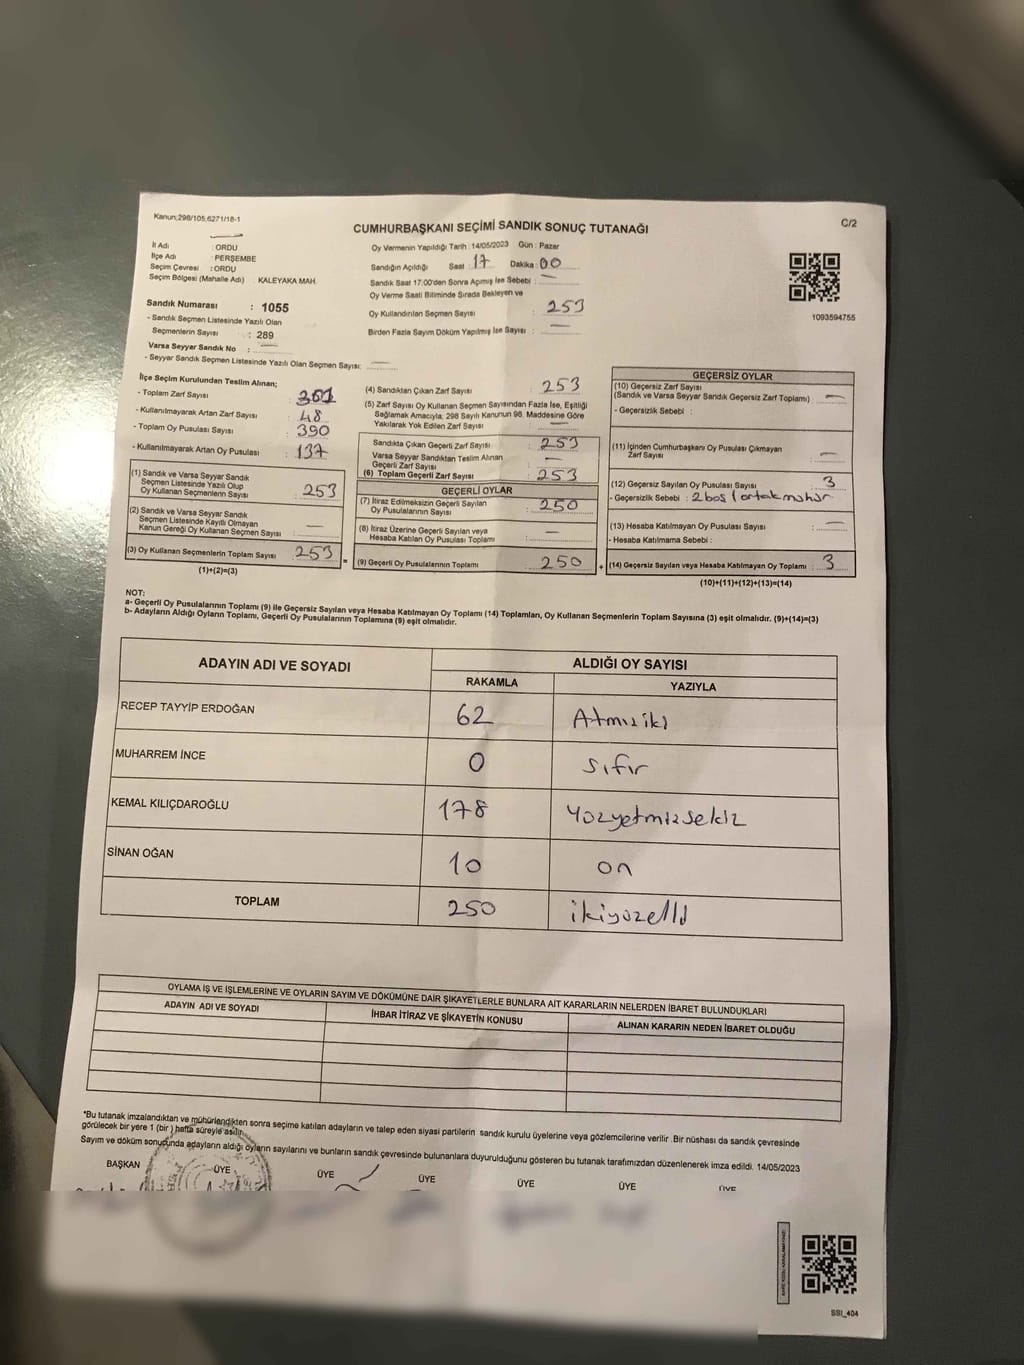 Kanun;298/105,6271/18-1
CUMHURBAŞKANI SEÇİMİ SANDIK SONUÇ TUTANAĞI
C/2
İl Adı : ORDU
İlçe Adı : PERŞEMBE
Seçim Çevresi : ORDU
Seçim Bölgesi (Mahalle Adı) : KALEYAKA MAH.
Sandık Numarası : 1055
- Sandık Seçmen Listesinde Yazılı Olan
Seçmenlerin Sayısı : 289
Varsa Seyyar Sandık No : —
- Seyyar Sandık Seçmen Listesinde Yazılı Olan Seçmen Sayısı: —
Oy Vermenin Yapıldığı Tarih : 14/05/2023 Gün : Pazar
Sandığın Açıldığı Saat : 17 Dakika : 00
Sandık Saat 17:00'den Sonra Açılmış İse Sebebi : —
Oy Verme Saati Bitiminde Sırada Bekleyen ve
Oy Kullandırılan Seçmen Sayısı : 253
Birden Fazla Sayım Döküm Yapılmış İse Sayısı : —
1093594755
İlçe Seçim Kurulundan Teslim Alınan;
- Toplam Zarf Sayısı : 301
- Kullanılmayarak Artan Zarf Sayısı : 48
- Toplam Oy Pusulası Sayısı : 390
- Kullanılmayarak Artan Oy Pusulası : 137
(1) Sandık ve Varsa Seyyar Sandık
Seçmen Listesinde Yazılı Olup
Oy Kullanan Seçmenlerin Sayısı : 253
(2) Sandık ve Varsa Seyyar Sandık
Seçmen Listesinde Kayıtlı Olmayan
Kanun Gereği Oy Kullanan Seçmen Sayısı : —
(3) Oy Kullanan Seçmenlerin Toplam Sayısı : 253
(1)+(2)=(3)
(4) Sandıktan Çıkan Zarf Sayısı : 253
(5) Zarf Sayısı Oy Kullanan Seçmen Sayısından Fazla İse, Eşitliği
Sağlamak Amacıyla, 298 Sayılı Kanunun 98. Maddesine Göre
Yakılarak Yok Edilen Zarf Sayısı : —
Sandıkta Çıkan Geçerli Zarf Sayısı : 253
Varsa Seyyar Sandıktan Teslim Alınan
Geçerli Zarf Sayısı : —
(6) Toplam Geçerli Zarf Sayısı : 253
GEÇERLİ OYLAR
(7) İtiraz Edilmeksizin Geçerli Sayılan
Oy Pusulalarının Sayısı : 250
(8) İtiraz Üzerine Geçerli Sayılan veya
Hesaba Katılan Oy Pusulası Toplamı : —
= (9) Geçerli Oy Pusulalarının Toplamı : 250
GEÇERSİZ OYLAR
(10) Geçersiz Zarf Sayısı
(Sandık ve Varsa Seyyar Sandık Geçersiz Zarf Toplamı) : —
- Geçersizlik Sebebi :
(11) İçinden Cumhurbaşkanı Oy Pusulası Çıkmayan
Zarf Sayısı : —
(12) Geçersiz Sayılan Oy Pusulası Sayısı : 3
- Geçersizlik Sebebi : 2 boş 1 ortak mühür
(13) Hesaba Katılmayan Oy Pusulası Sayısı : —
- Hesaba Katılmama Sebebi :
+ (14) Geçersiz Sayılan veya Hesaba Katılmayan Oy Toplamı : 3
(10)+(11)+(12)+(13)=(14)
NOT:
a- Geçerli Oy Pusulalarının Toplamı (9) ile Geçersiz Sayılan veya Hesaba Katılmayan Oy Toplamı (14) Toplamları, Oy Kullanan Seçmenlerin Toplam Sayısına (3) eşit olmalıdır. (9)+(14)=(3)
b- Adayların Aldığı Oyların Toplamı, Geçerli Oy Pusulalarının Toplamına (9) eşit olmalıdır.
ADAYIN ADI VE SOYADI
ALDIĞI OY SAYISI
RAKAMLA YAZIYLA
RECEP TAYYİP ERDOĞAN 62 Atmıziki
MUHARREM İNCE 0 sıfır
KEMAL KILIÇDAROĞLU 178 Yüzyetmizsekiz
SİNAN OĞAN 10 on
TOPLAM 250 ikiyüzelli
OYLAMA İŞ VE İŞLEMLERİNE VE OYLARIN SAYIM VE DÖKÜMÜNE DAİR ŞİKAYETLERLE BUNLARA AİT KARARLARIN NELERDEN İBARET BULUNDUKLARI
ADAYIN ADI VE SOYADI İHBAR İTİRAZ VE ŞİKAYETİN KONUSU ALINAN KARARIN NEDEN İBARET OLDUĞU
*Bu tutanak imzalandıktan ve mühürlendikten sonra seçime katılan adayların ve talep eden siyasi partilerin sandık kurulu üyelerine veya gözlemcilerine verilir. Bir nüshası da sandık çevresinde
görülecek bir yere 1 (bir) hafta süreyle asılır.
Sayım ve döküm sonucunda adayların aldığı oyların sayılarını ve bunların sandık çevresinde bulunanlara duyurulduğunu gösteren bu tutanak tarafımızdan düzenlenerek imza edildi. 14/05/2023
BAŞKAN ÜYE ÜYE ÜYE ÜYE ÜYE ÜYE
SSI_404